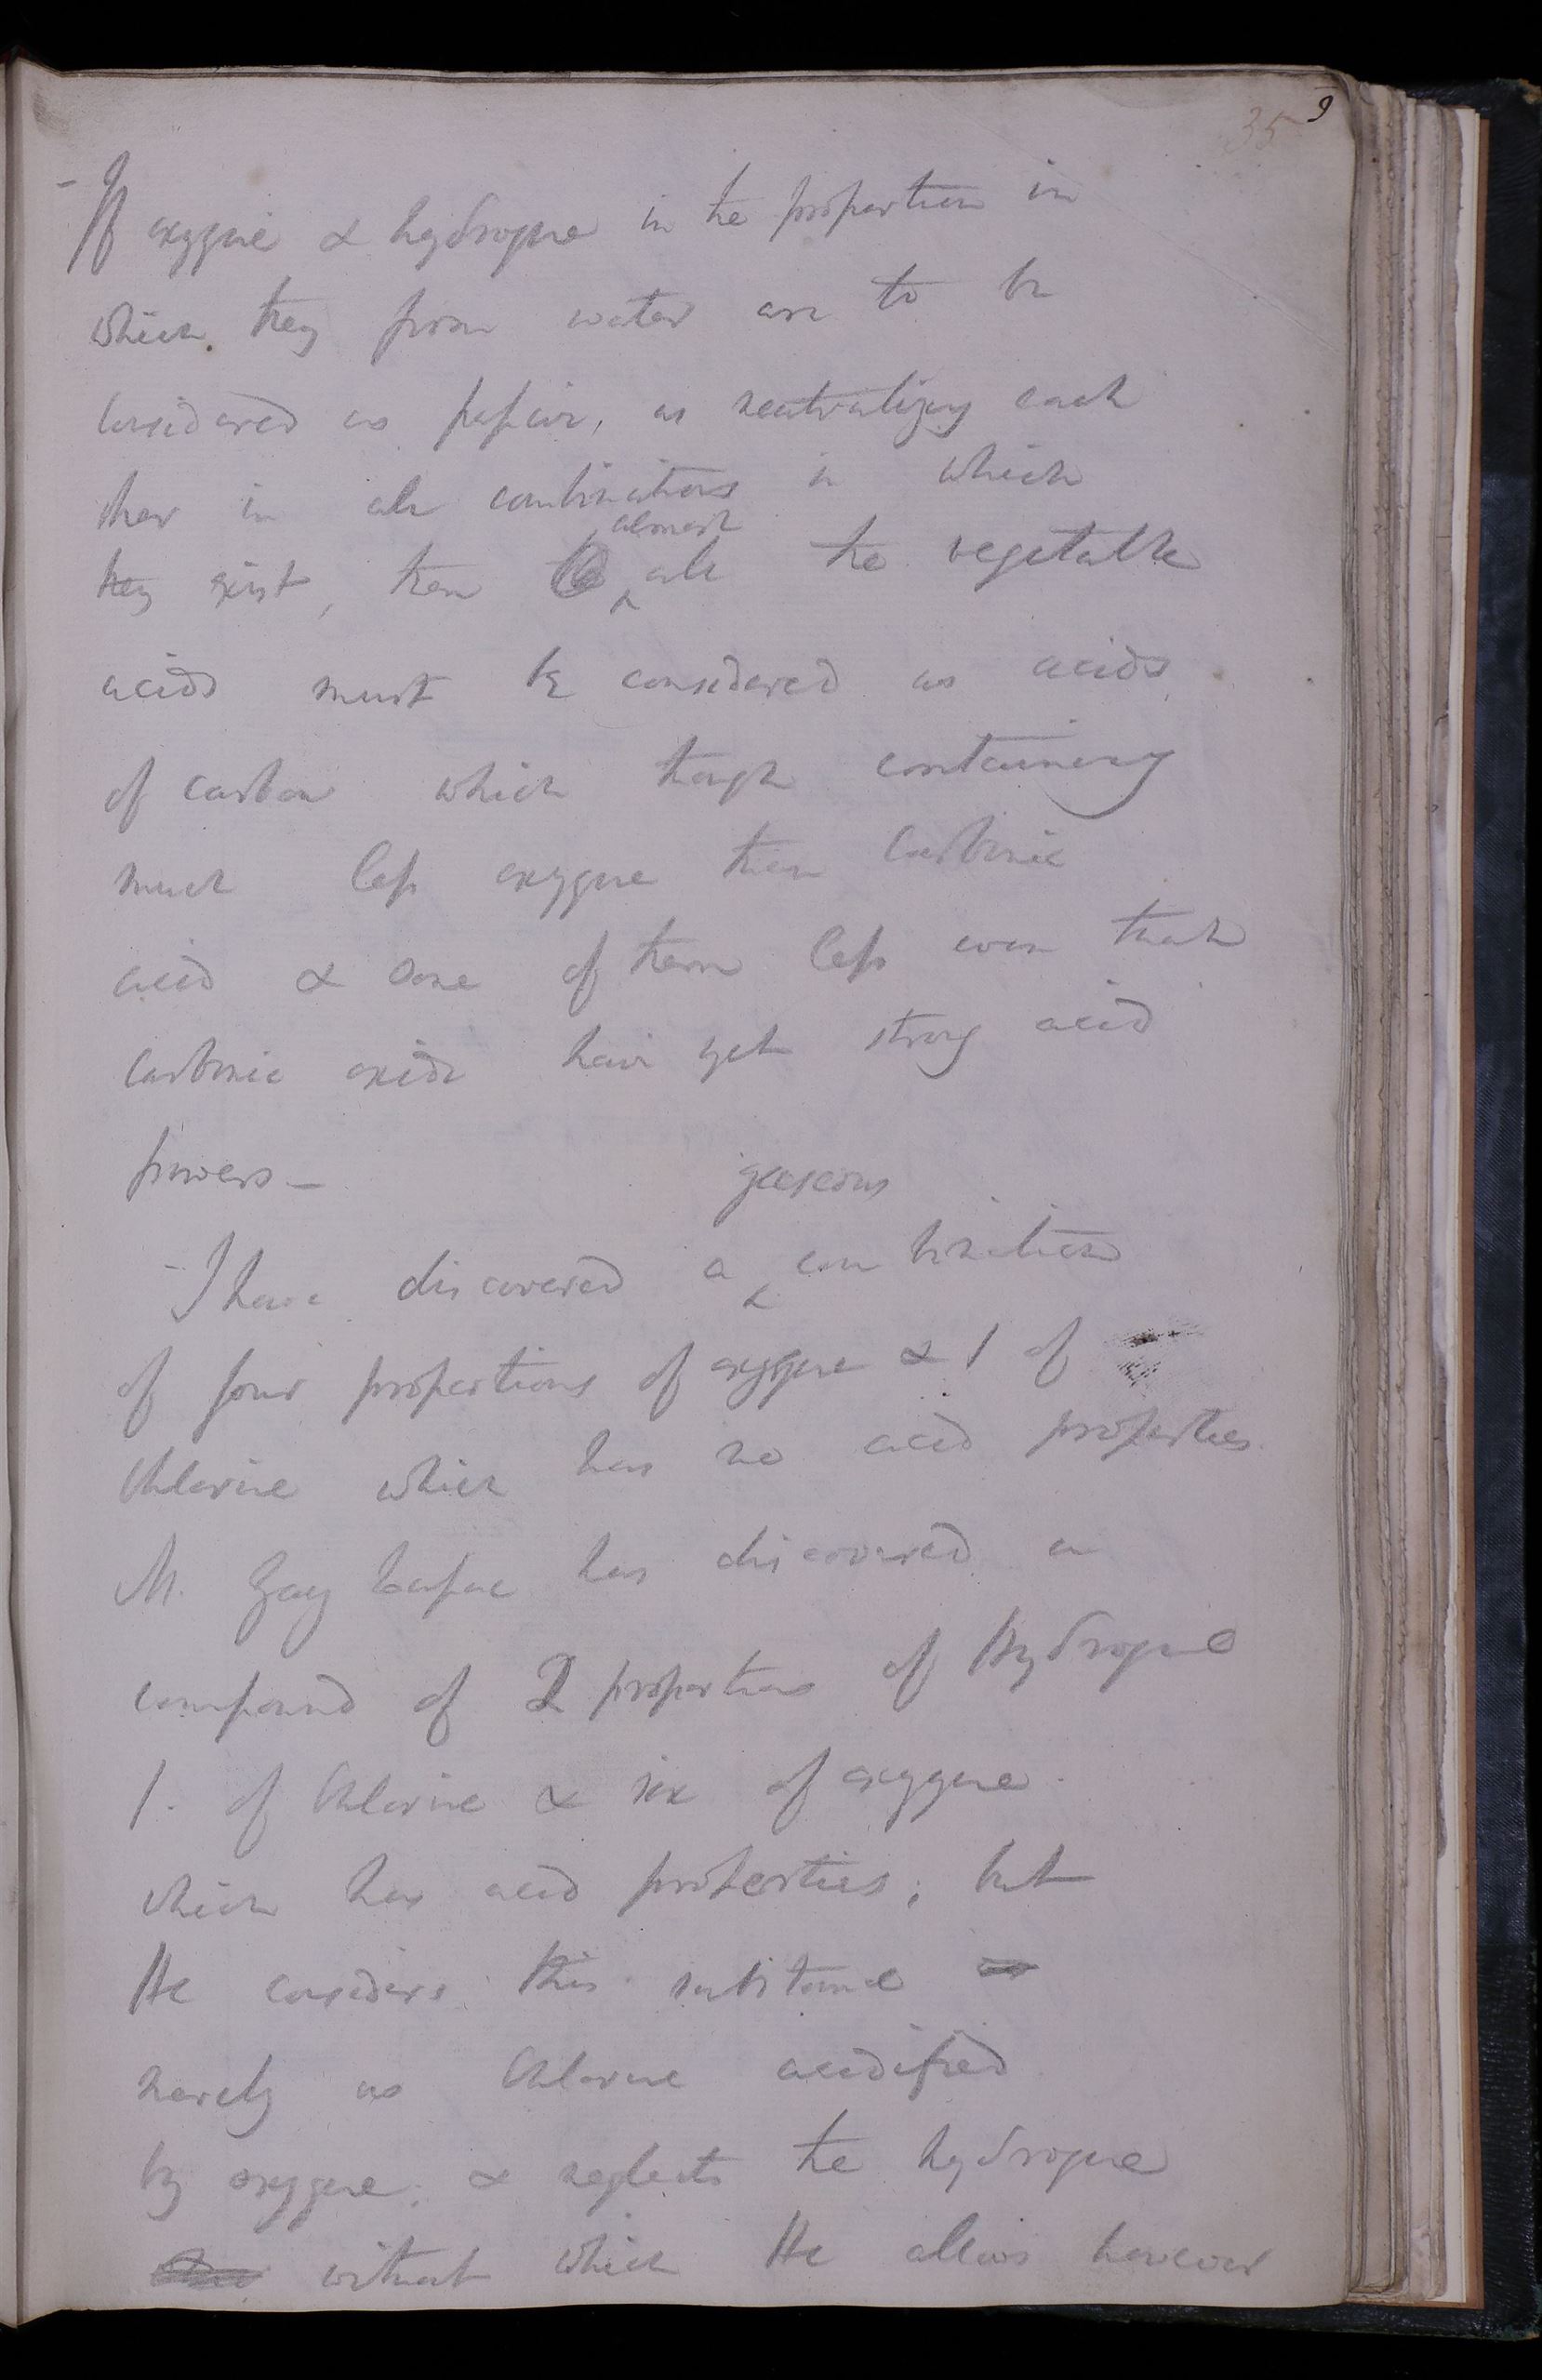 35 9
- If oxygene & hydrogene in the proportion in
which they form water are to be
considered as passive, as neutralizing each
other in all combinations in which
almost
they exist, then all the vegetable
acids must be considered as acids
of carbon which though containing
much less oxygene than Carbonic
acid & some of them less even than
Carbonic oxide have yet strong acid
powers –
gaseous
- I have discovered a combination
of four proportions of oxygene & 1 of
Chlorine which has no acid properties.
M. Gay Lussac has discovered a
compound of 2 proportions of Hydrogene
1. of Chlorine & six of oxygene.
which has acid properties; but
He considers this substance
merely as Chlorine acidified
by oxygene; & neglects the hydrogene
without which He allows however